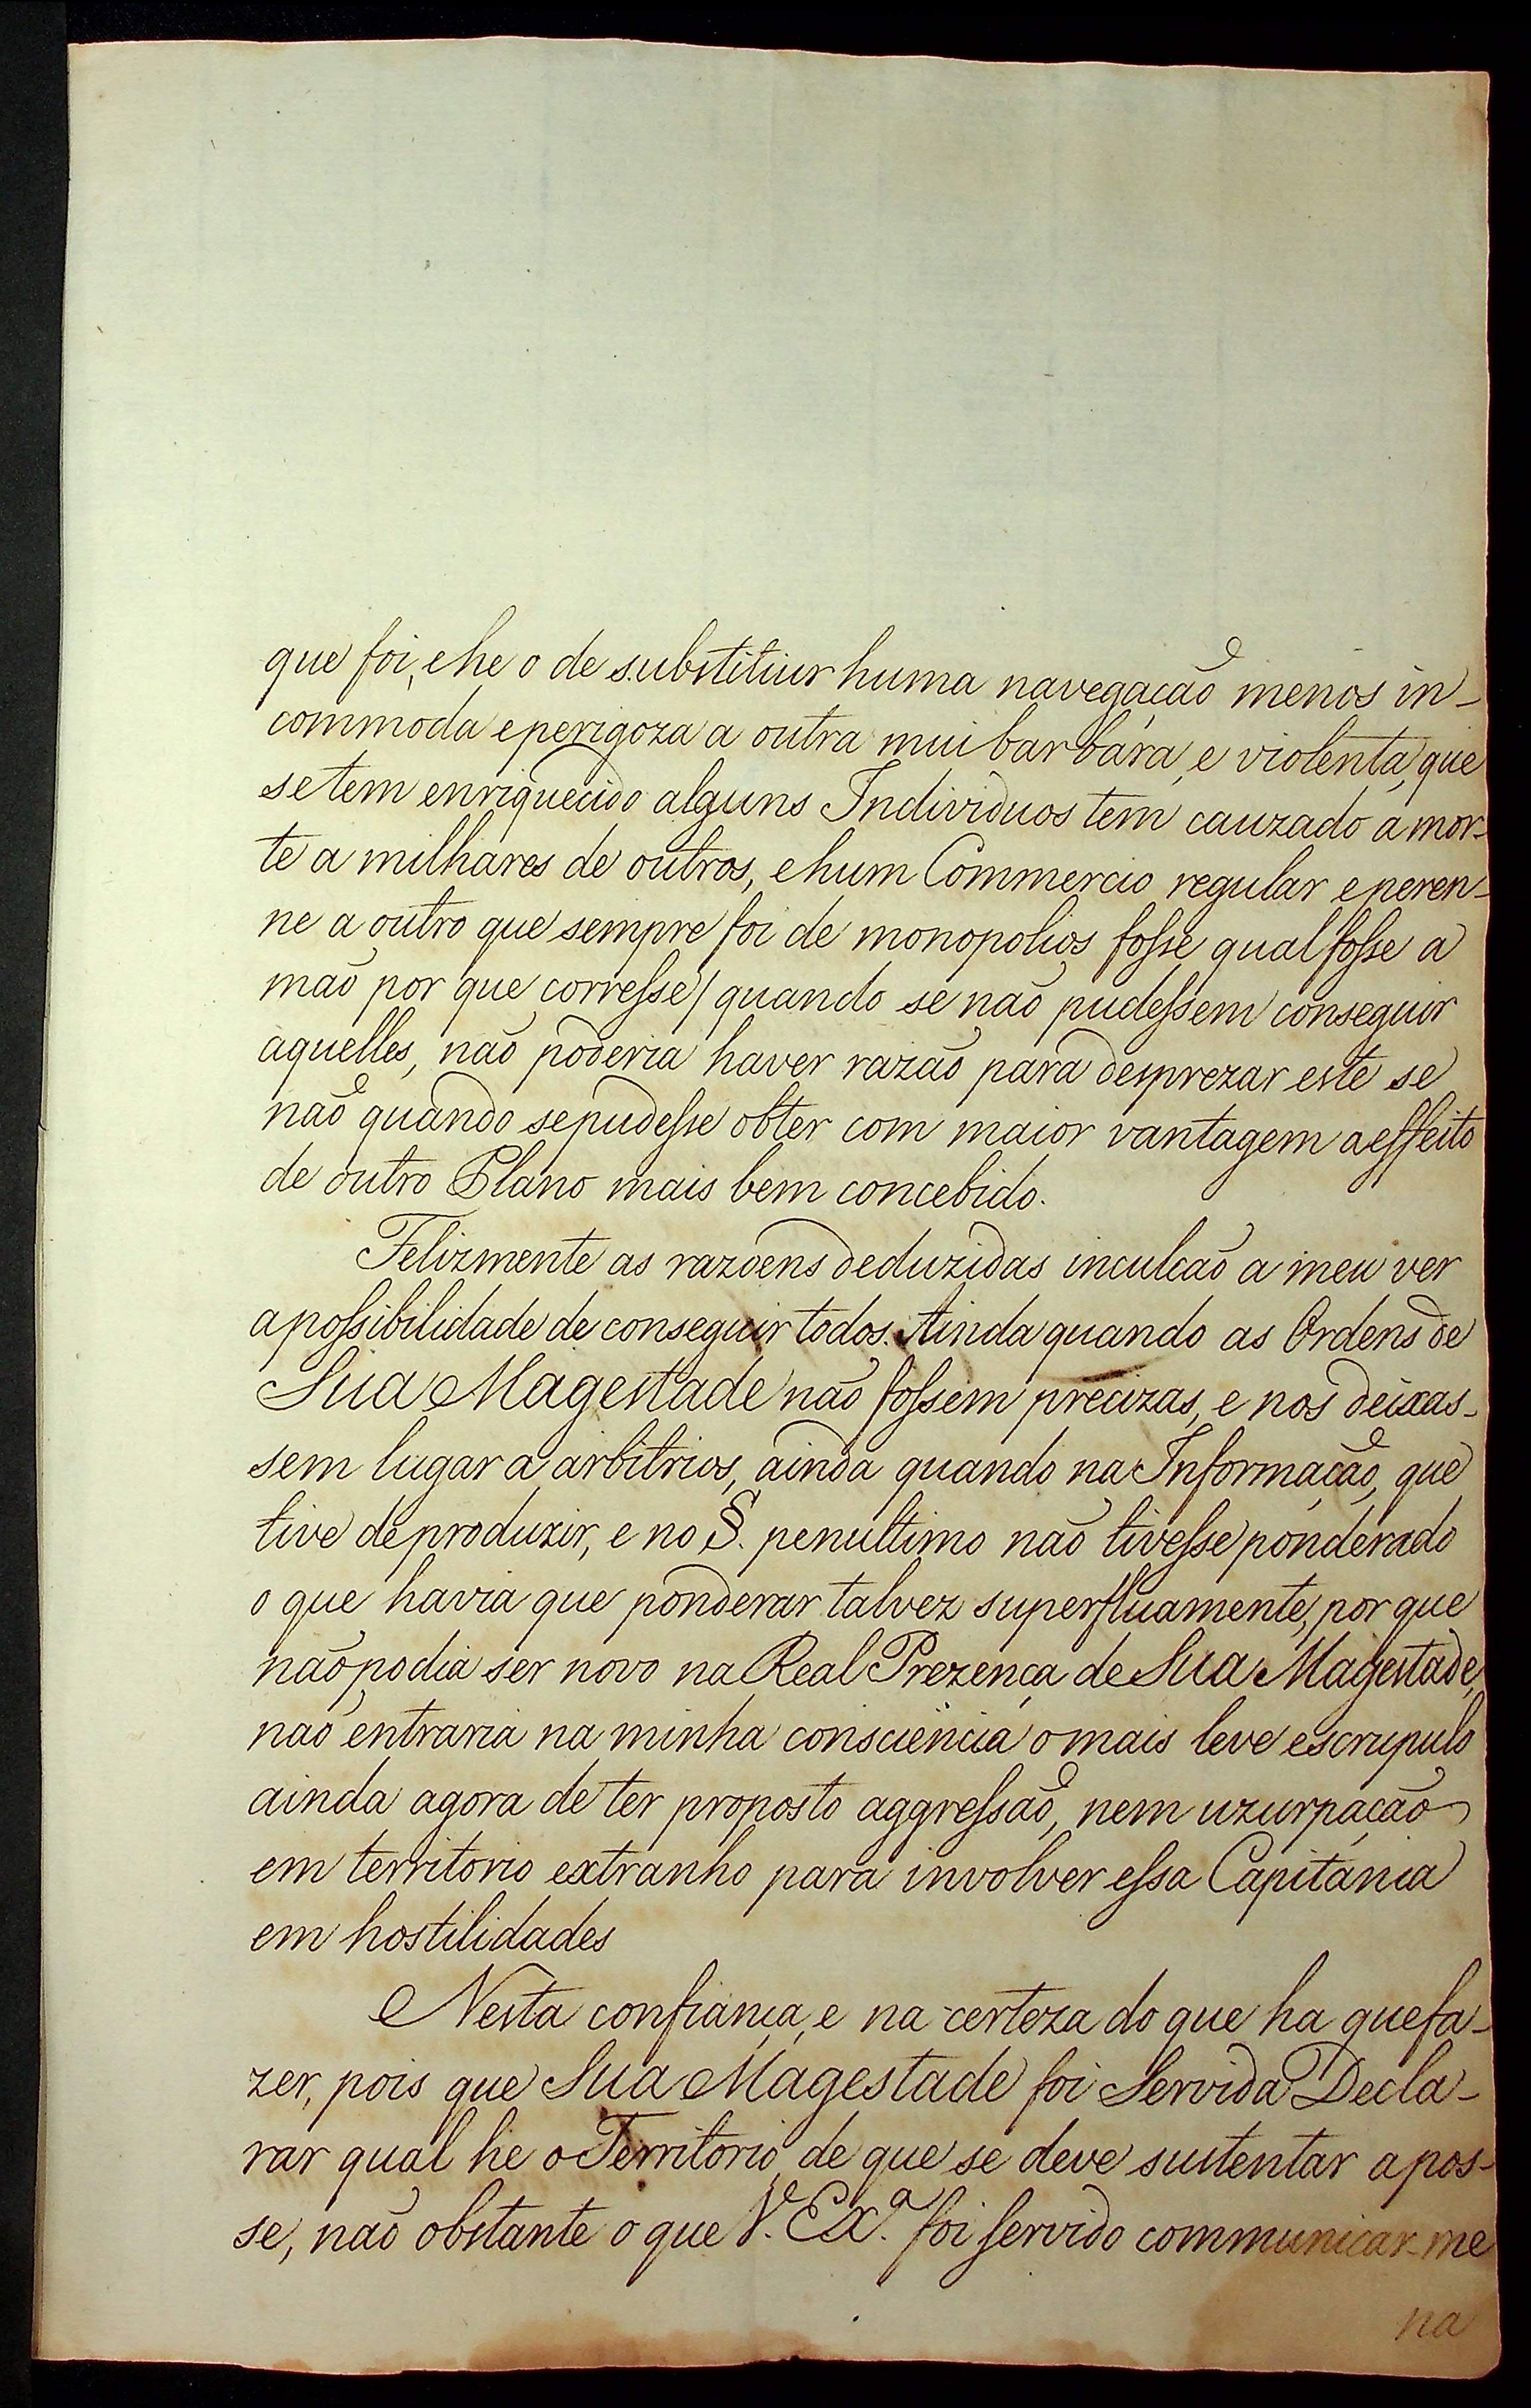 que foi, e he o de substituir huma navegação menos in-
commoda e perigoza a outra mui barbara, e violenta, que
se tem enriquecido alguns Individuos tem cauzado a mor-
te a milhares de outros, e hum Commercio regular e peren-
ne a outro que sempre foi de monopolios fosse qual fosse a
mão por que corresse / quando se não pudessem conseguir
aquelles, não poderia haver razão para desprezar este se
não quando se pudesse obter com maior vantagem a effeito
de outro Plano mais bem concebido.
Felizmente as razoens deduzidas inculcão a meu ver
a possibilidade de conseguir todos. Ainda quando as Ordens de
Sua Magestade não fossem precizas, e nos deixas-
sem lugar a arbitrios, ainda quando na Informação, que
tive de produzir, e no §. penultimo não tivesse ponderado
o que havia que ponderar talvez superfluamente, por que
não podia ser novo na Real Prezença de Sua Magestade,
não entraria na minha consciencia o mais leve escrupulo
ainda agora de ter proposto aggressão, nem uzurpação
em territorio extranho para involver essa Capitania
em hostilidades
Nesta confiança, e na certeza do que ha que fa-
zer, pois que Sua Magestade foi Servida Decla-
rar qual he o Territorio, de que se deve sustentar a pos-
se, não obstante o que V. Exª. foi servido communicar-me
na